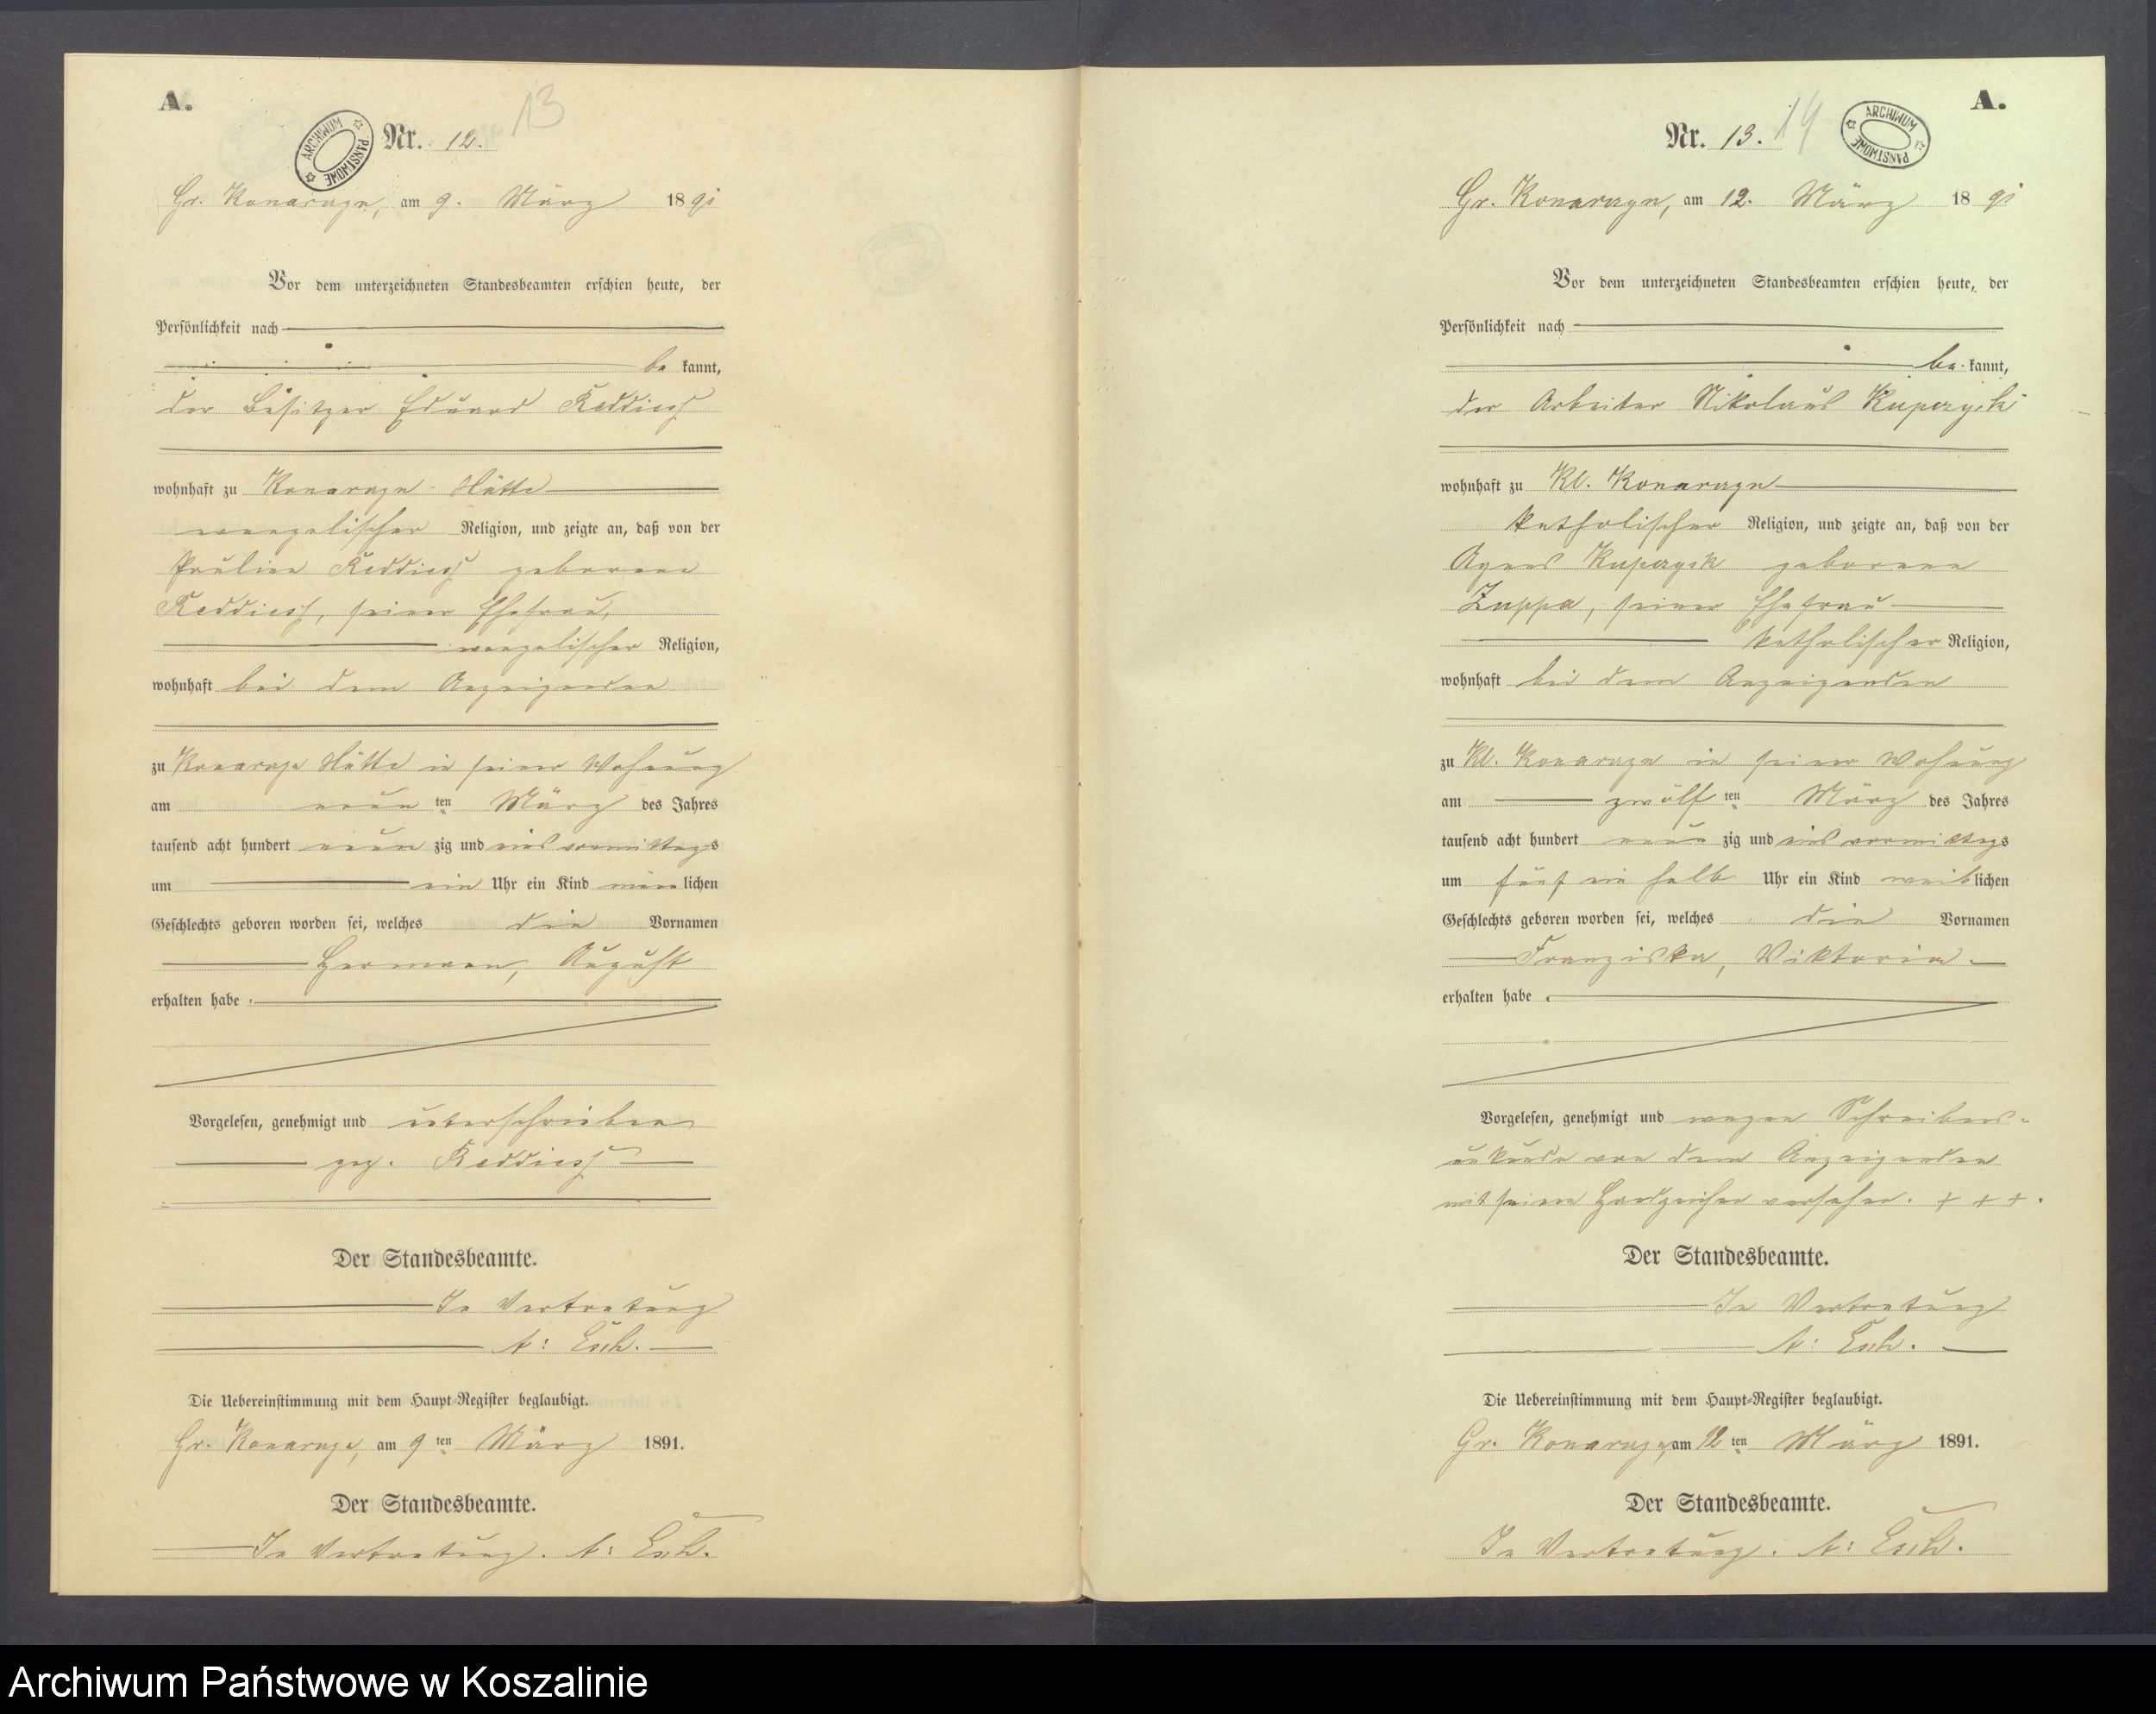 A.
ARCHIWUM PAŃSTWOWE
Nr. 12.
13
Gr. Konarzyn, am 9. März 1891
Vor dem unterzeichneten Standesbeamten erschien heute, der
Persönlichkeit nach
be kannt,
der Besitzer Eduard Reddies
wohnhaft zu Konarzyn-Hütte
evangelischer Religion, und zeigte an, daß von der
Pauline Reddies geborene
Reddies, seiner Ehefrau,
evangelischer Religion,
wohnhaft bei dem Anzeigenden
zu Konarzyn Hütte in seiner Wohnung
am neun ten März des Jahres
tausend acht hundert neun zig und eins vormittags
um ein Uhr ein Kind männ lichen
Geschlechts geboren worden sei, welches die Vornamen
Hermann, August
erhalten habe.
Vorgelesen, genehmigt und unterschrieben
gez. Reddies
Der Standesbeamte.
In Vertretung
A: Esch.
Die Uebereinstimmung mit dem Haupt-Register beglaubigt.
Gr. Konarzyn, am 9 ten März 1891.
Der Standesbeamte.
In Vertretung. A: Esch.
A.
Nr. 13.
14
ARCHIWUM PAŃSTWOWE
Gr. Konarzyn, am 12. März 1891
Vor dem unterzeichneten Standesbeamten erschien heute, der
Persönlichkeit nach
be kannt,
der Arbeiter Nikolaus Kuperzyk
wohnhaft zu Kl. Konarzyn
katholischer Religion, und zeigte an, daß von der
Agnes Kuperzyk geborene
Zuppa, seiner Ehefrau
katholischer Religion,
wohnhaft bei dem Anzeigenden
zu Kl. Konarzyn in seiner Wohnung
am zwölf ten März des Jahres
tausend acht hundert neun zig und eins vormittags
um fünf ein halb Uhr ein Kind weib lichen
Geschlechts geboren worden sei, welches die Vornamen
Franziska, Viktoria
erhalten habe.
Vorgelesen, genehmigt und wegen Schreibens-
unkunde von dem Anzeigenden
mit seinem Handzeichen versehen. + + +.
Der Standesbeamte.
In Vertretung
A: Esch.
Die Uebereinstimmung mit dem Haupt-Register beglaubigt.
Gr. Konarzyn, am 12 ten März 1891.
Der Standesbeamte.
In Vertretung. A: Esch.
Archiwum Państwowe w Koszalinie